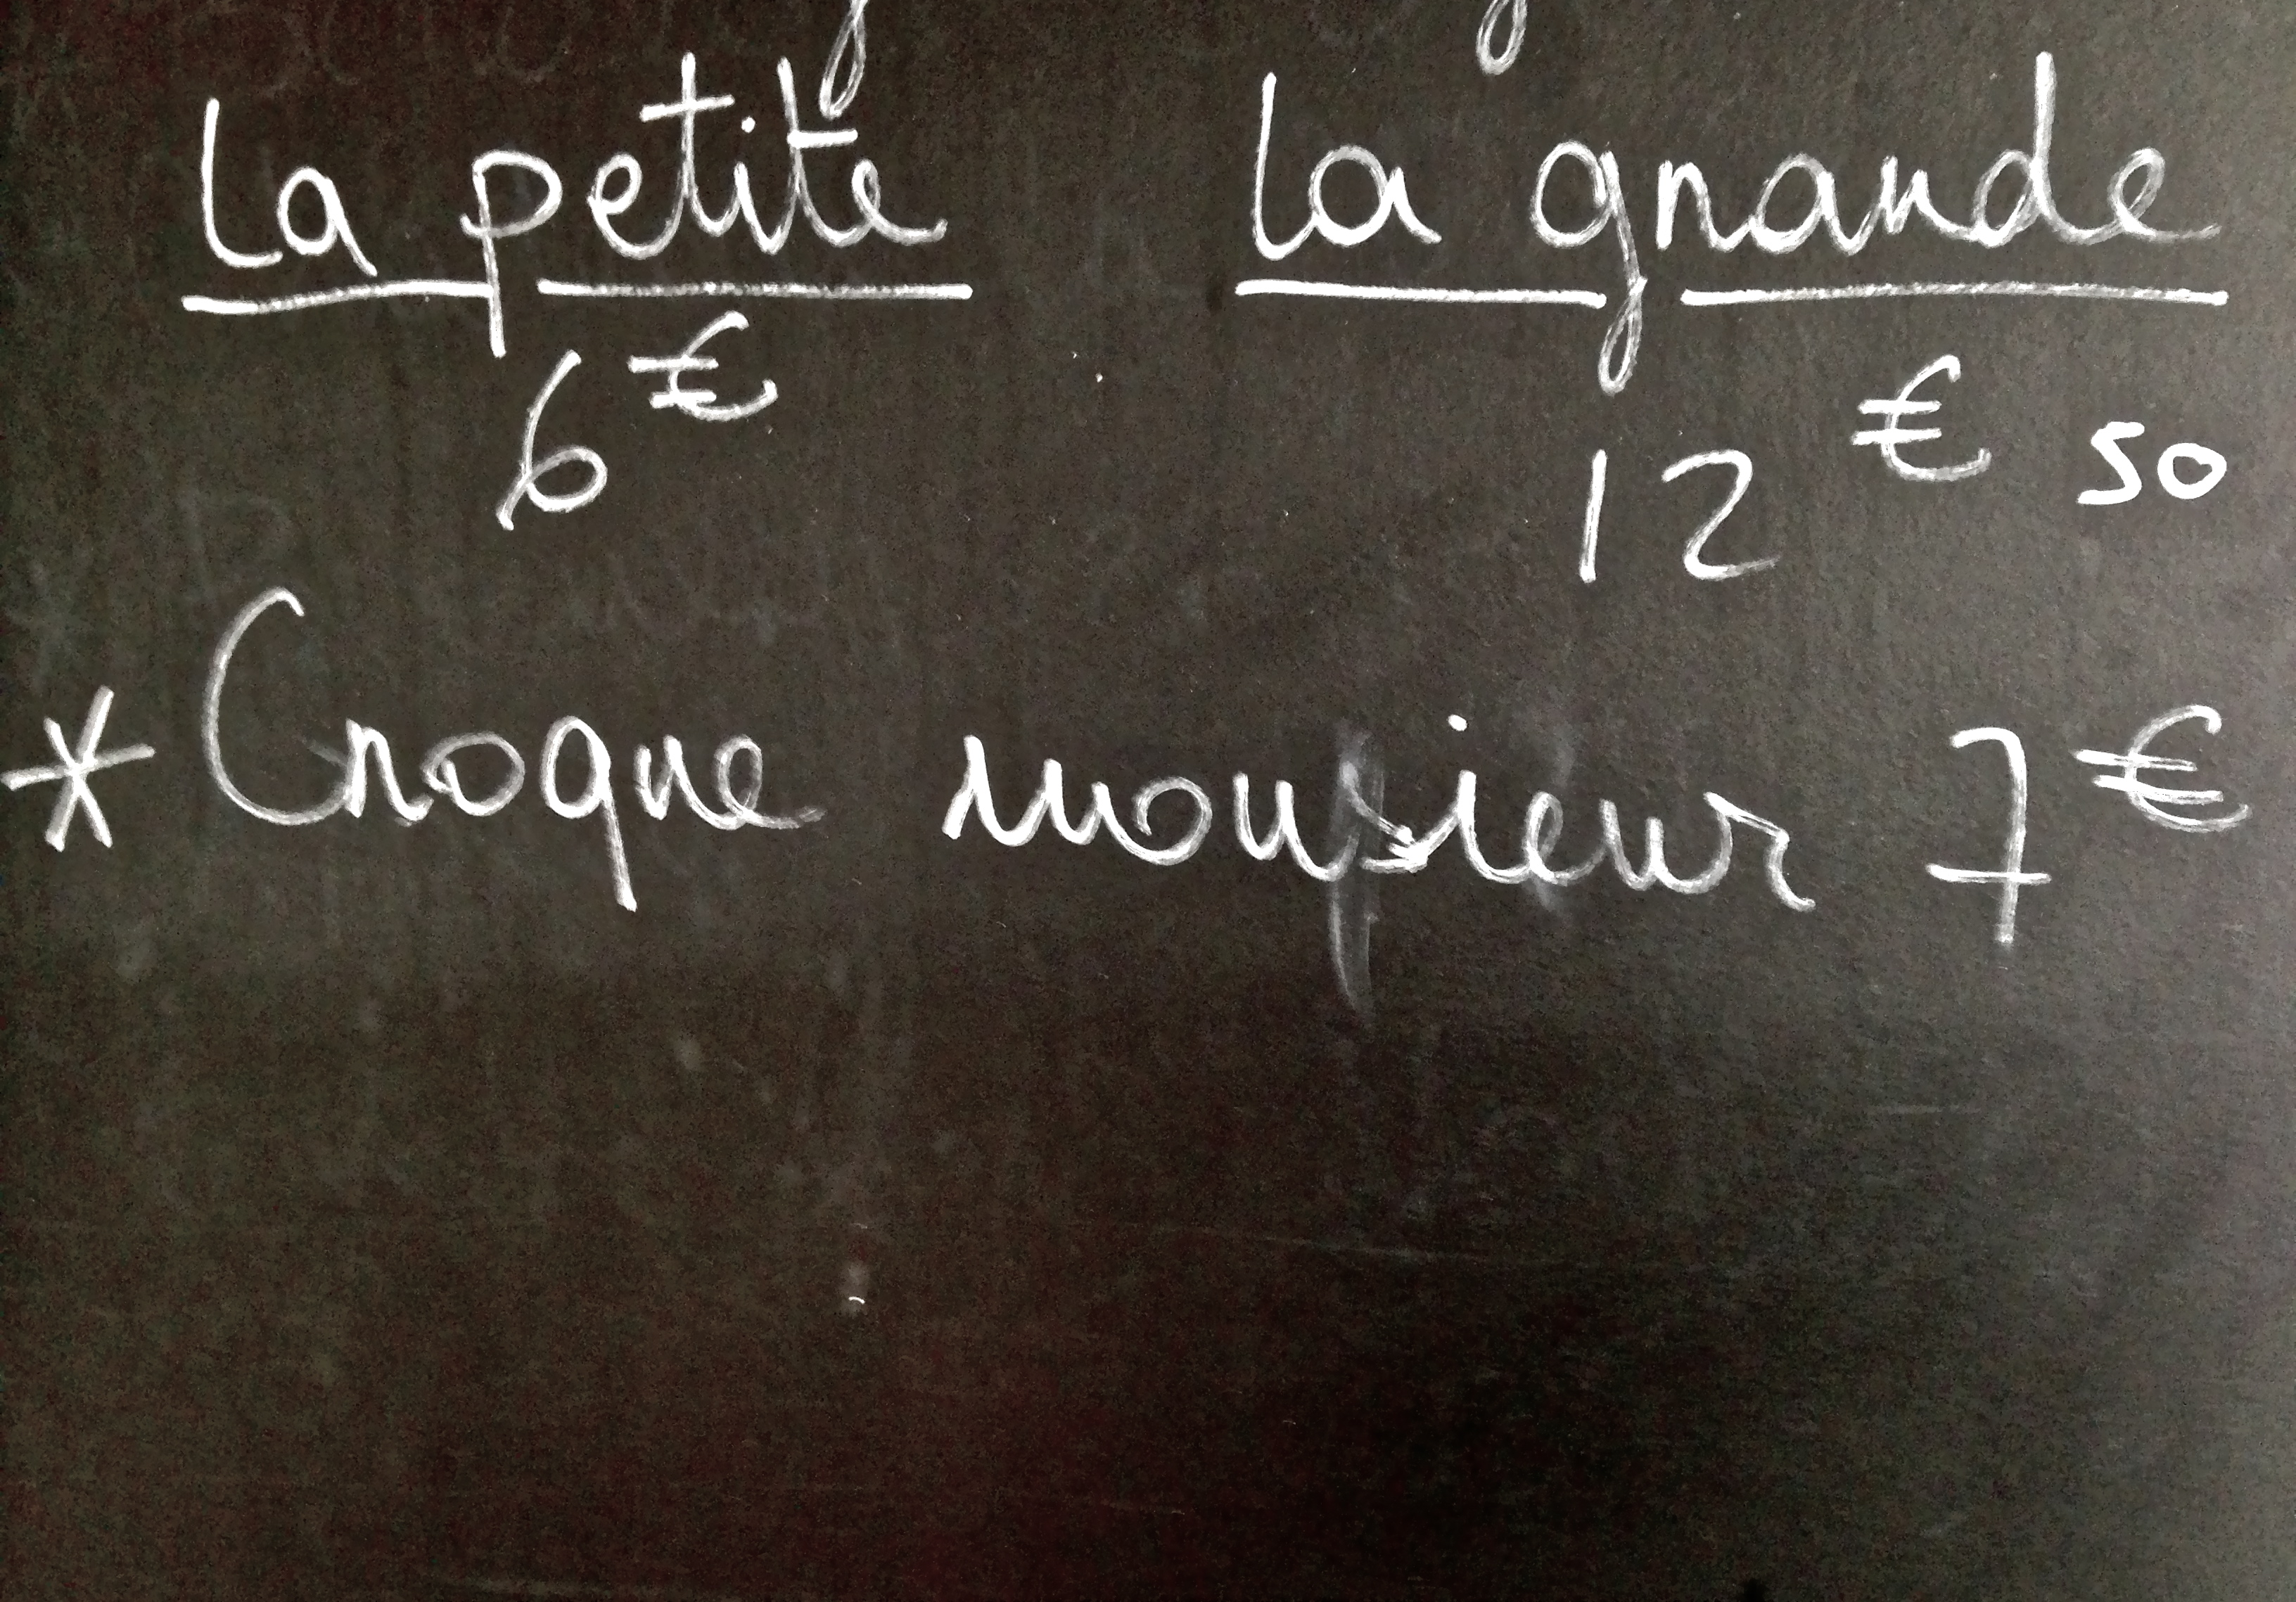 la petite la grande
6€ 12€50
* Croque monsieur 7€